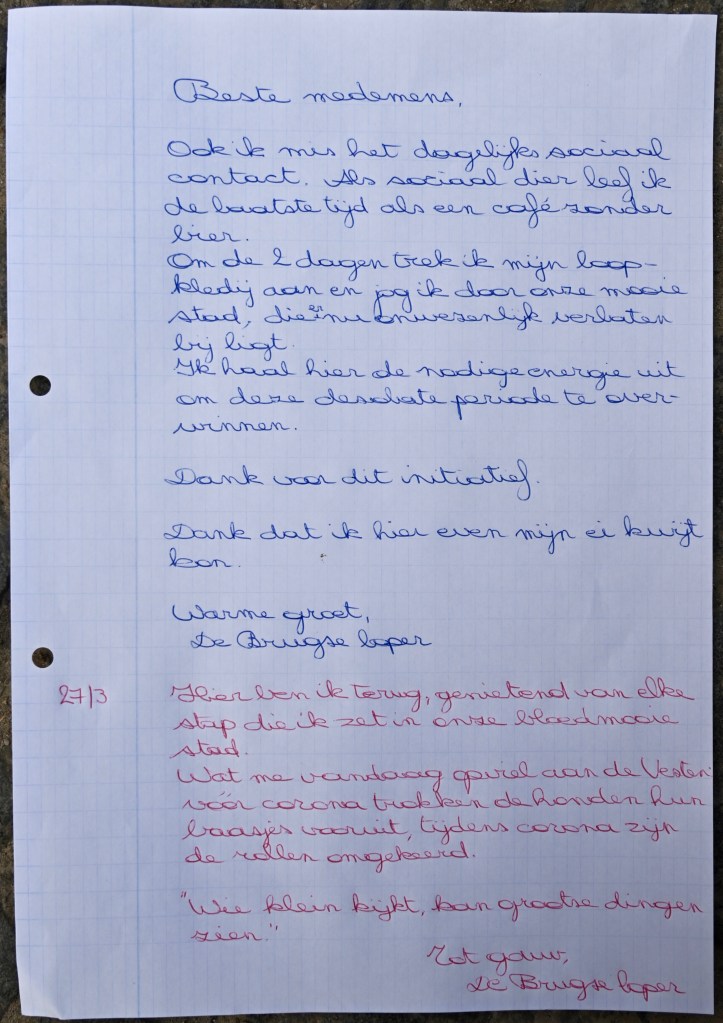 Beste medemens,
Ook ik mis het dagelijks sociaal
contact. Als sociaal dier leef ik
de laatste tijd als een café zonder
bier.
Om de 2 dagen trek ik mijn loop-
kledij aan en jog ik door onze mooie
stad, die er nu onwezenlijk verlaten
bij ligt.
Ik haal hier de nodige energie uit
om deze desolate periode te over-
winnen.
Dank voor dit initiatief.
Dank dat ik hier even mijn ei kwijt
kon.
Warme groet,
De Brugse loper
27/3 Hier ben ik terug, genietend van elke
stap die ik zet in onze bloedmooie
stad.
Wat me vandaag opviel aan de Vesten:
vóór corona trokken de honden hun
baasjes vooruit, tijdens corona zijn
de rollen omgekeerd.
"Wie klein kijkt, kan grootse dingen
zien."
Tot gauw,
De Brugse loper